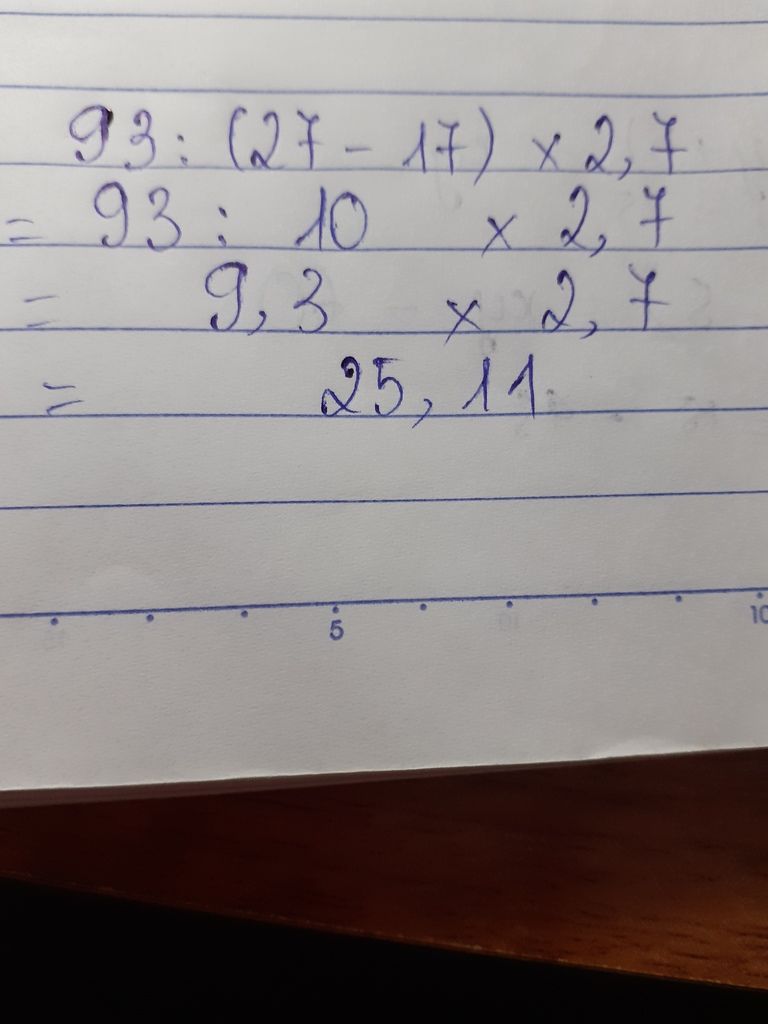 93 : (27 - 17) x 2,7
= 93 : 10 x 2,7
= 9,3 x 2,7
= 25,11
5 10